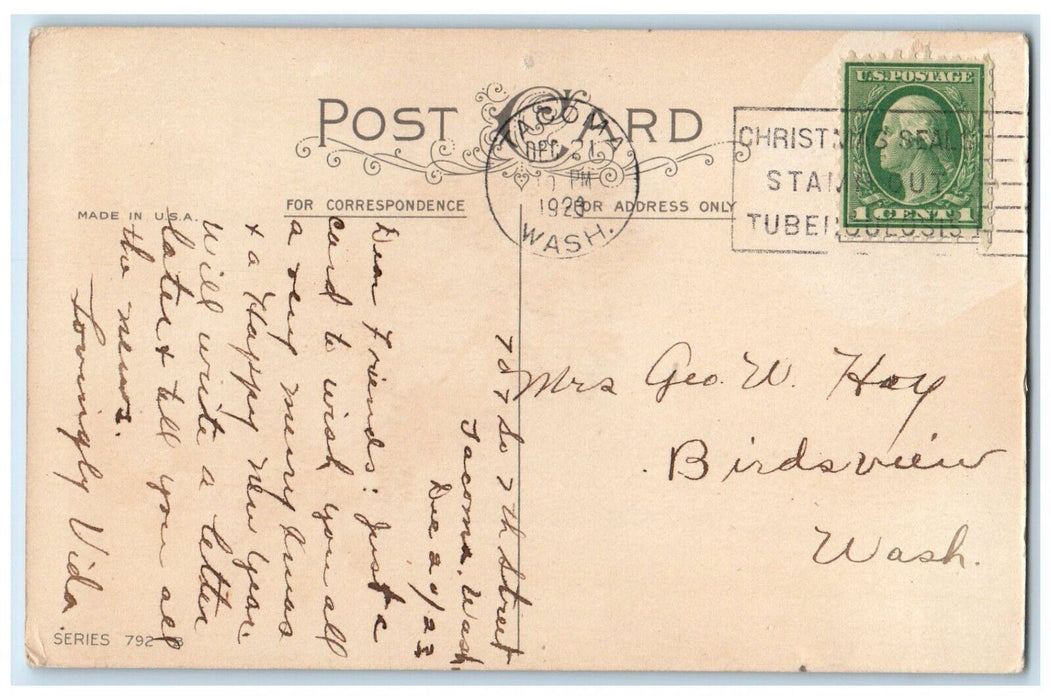 POST CARD
MADE IN U.S.A.
FOR CORRESPONDENCE
FOR ADDRESS ONLY
TACOMA
DEC 21
PM
1923
WASH.
CHRISTMAS SEALS
STAMP OUT
TUBERCULOSIS
U.S. POSTAGE
1 CENT 1
707 So 7th Street
Tacoma, Wash.
Dec 20/23
Dear Friends: Just a
card to wish you all
a very merry Xmas
+ a Happy New Year.
Will write a letter
later + tell you all
the news.
Lovingly Vida.
Mrs Geo. W. Hoy
Birdsview
Wash.
SERIES 792 B